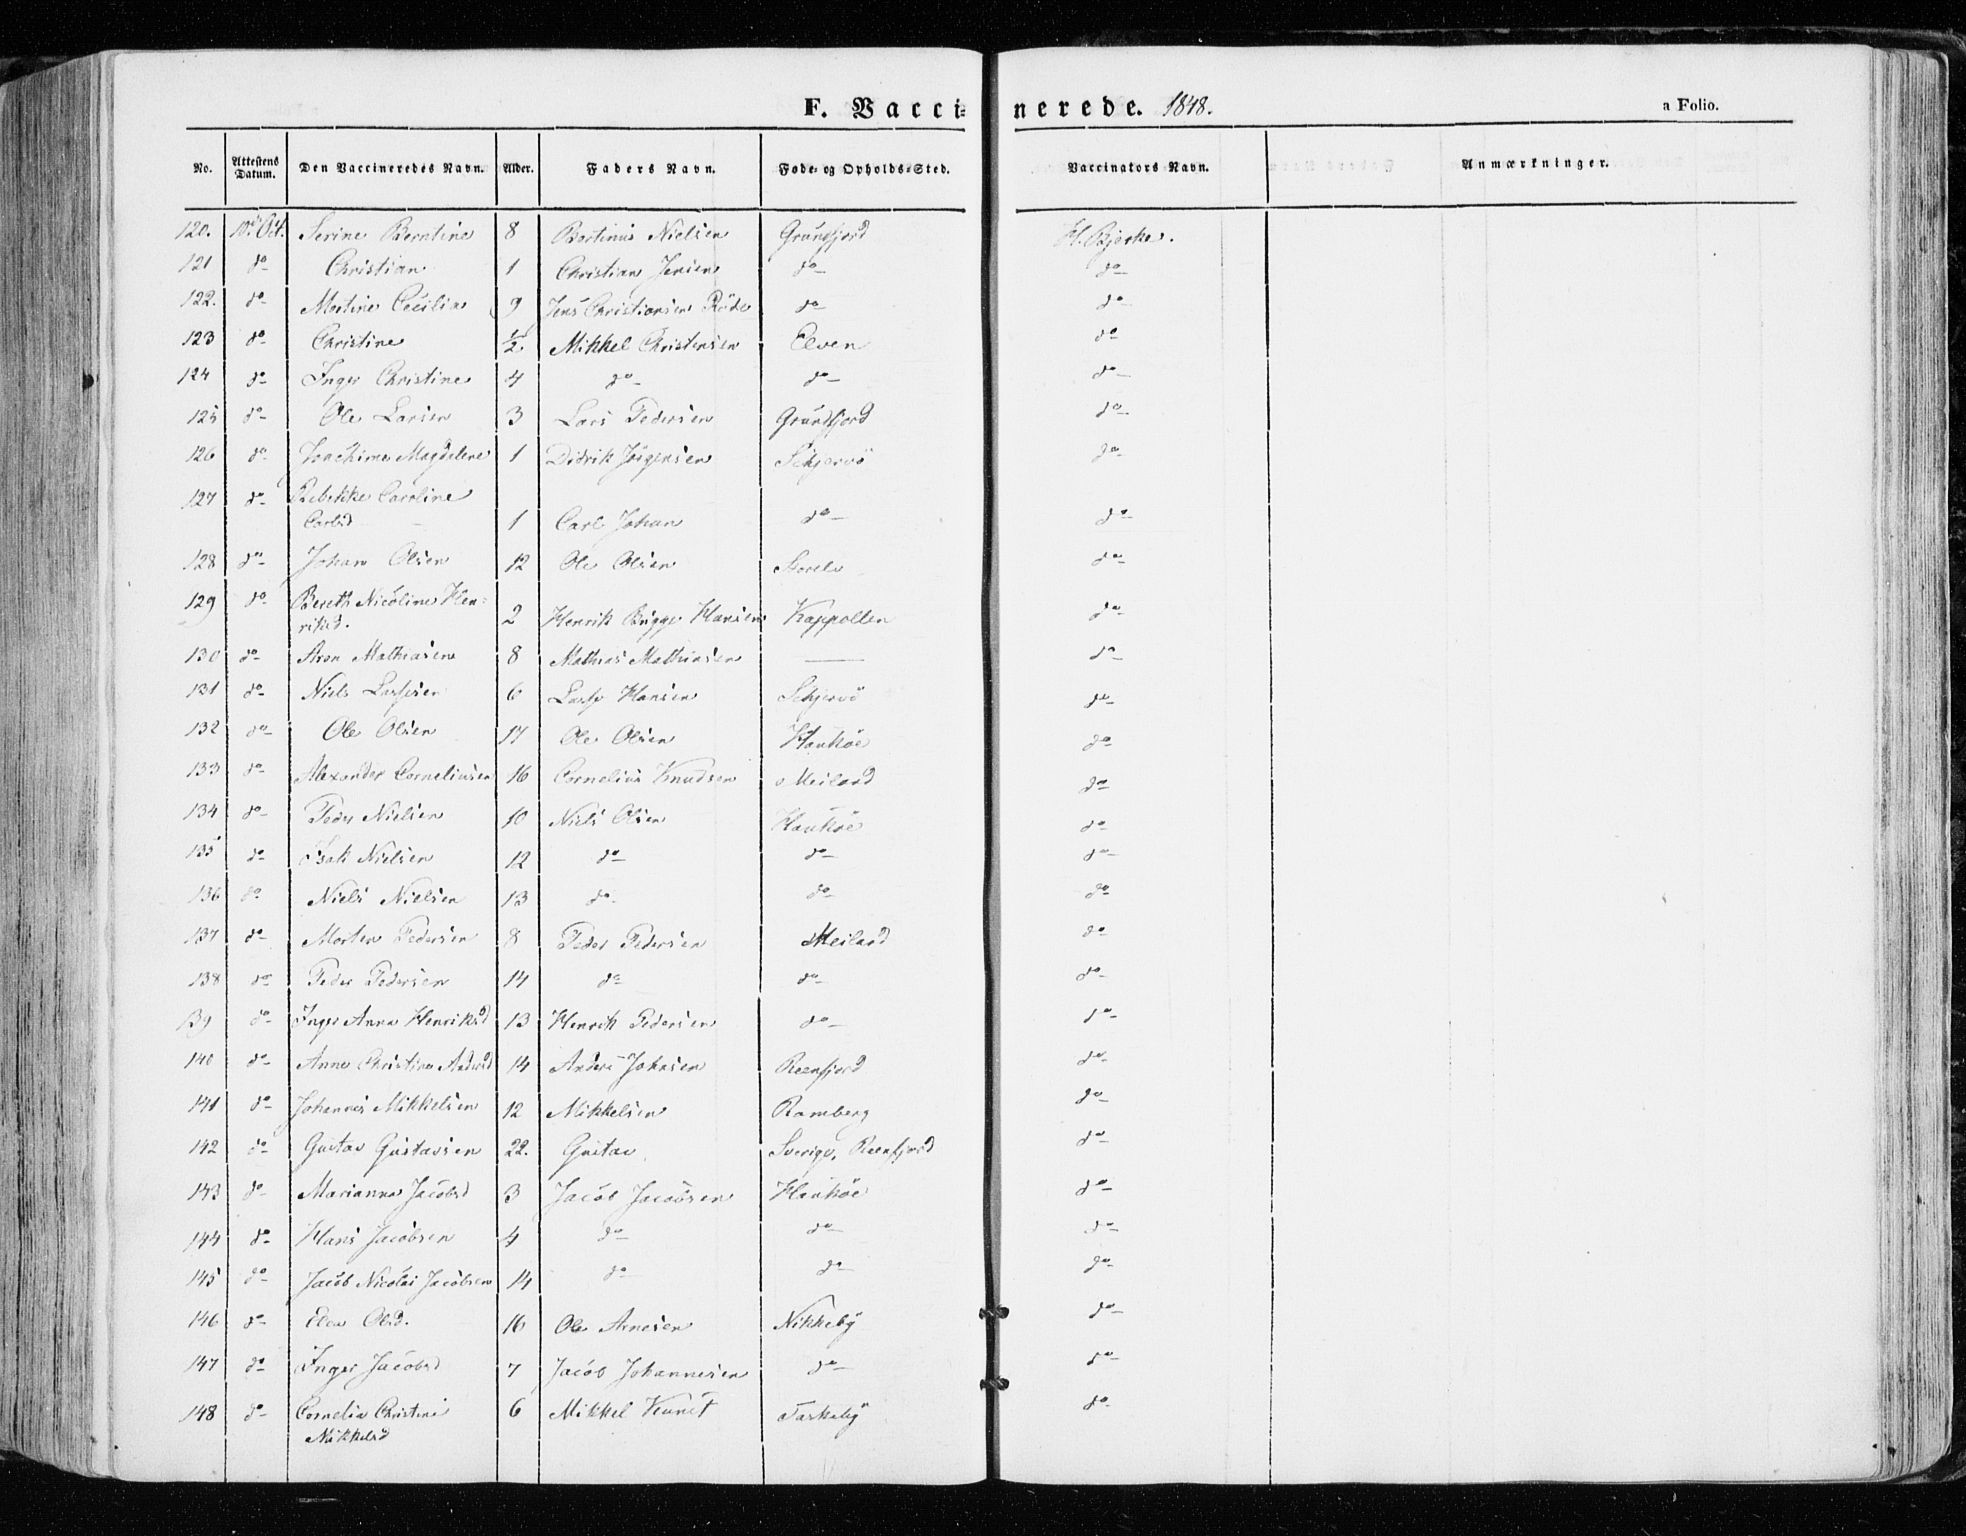 F. Vaccinerede. 1848.
a Folio.
No. Attestens Datum. Den Vaccineredes Navn. Alder. Faders Navn. Føde- og Opholds-Sted. Vaccinators Navn. Anmærkninger.
120. 10de Oct. Serine Berntine 8 Bertinus Nielsen Grunfjord H. Bjerke.
121 do Christian 1 Christian Jensen do do
122. do Martine Cecilia 9 Jens Christiansen do do
123 do Christine ½ Mikkel Christensen Elven do
124 do Inger Christine 4 do do do
125 do Ole Larsen 3 Lars Pedersen Grundfjord do
126 do Joachime Magdalene 1 Didrik Jörgensen Schjervö do
127 do Rebekke Caroline
Carlsd 1 Carl Johan do do
128 do Johan Olsen 12 Ole Olsen Storelv do
129 do Bereth Nicoline Hen-
riksd. 2 Henrik Bugge Hansen Kappollen do
130 do Aron Mathiasen 8 Mathias Mathiasen — do
131 do Niels Larssen 6 Lars Hansen Schjervö do
132 do Ole Olsen 17 Ole Olsen Haukøe do
133 do Alexander Corneliusen 16 Cornelius Knudsen Meiland do
134 do Peder Nielsen 10 Niels Olsen Haukøe do
135 do Isak Nielsen 12 do do do
136 do Niels Nielsen 13 do do do
137 do Morten Pedersen 8 Peder Pedersen Meiland do
138 do Peder Pedersen 14 do do do
139 do Inger Anna Henriksd 13 Henrik Pedersen do do
140 do Anne Christine Andersd 14 Anders Johnsen Reenfjord do
141 do Johannes Mikkelsen 12 Mikkelsen Ramberg do
142 do Gustav Gustavsen 22. Gustav Sverige, Reenfjord do
143 do Marianna Jacobsd 3 Jacob Jacobsen Haukøe do
144 do Hans Jacobsen 4 do do do
145 do Jacob Nicolai Jacobsen 14 do do do
146 do Elen Olsd. 16 Ole Arnesen Nikkeby do
147 do Inger Jacobsd 7 Jacob Johannesen do do
148 do Cornelia Christine
Mikkelsd 6 Mikkel Kunst Taskeby do